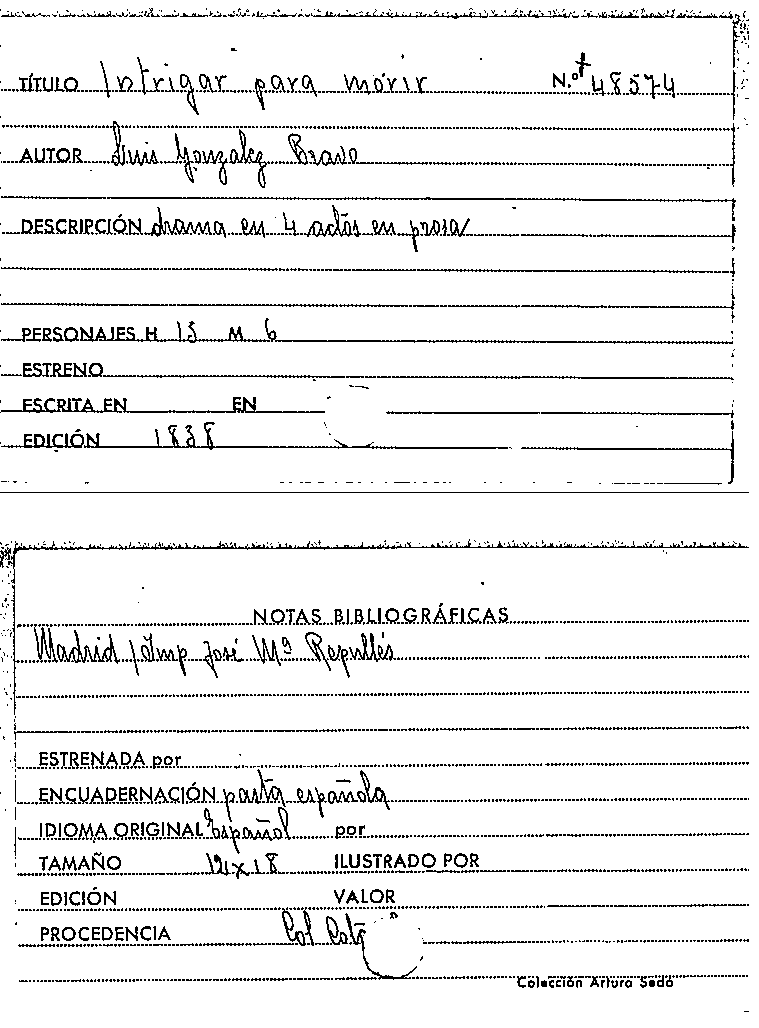 TÍTULO Intrigar para morir N.º 48574
AUTOR Luis Gonzalez Bravo
DESCRIPCIÓN drama en 4 actos en prosa
PERSONAJES H 13 M 6
ESTRENO
ESCRITA EN EN
EDICIÓN 1838
NOTAS BIBLIOGRÁFICAS
Madrid / Imp José Mª Repullés
ESTRENADA por
ENCUADERNACIÓN pasta española
IDIOMA ORIGINAL Español por
TAMAÑO 12x18 ILUSTRADO POR
EDICIÓN VALOR
PROCEDENCIA Col
Colección Arturo Sedó